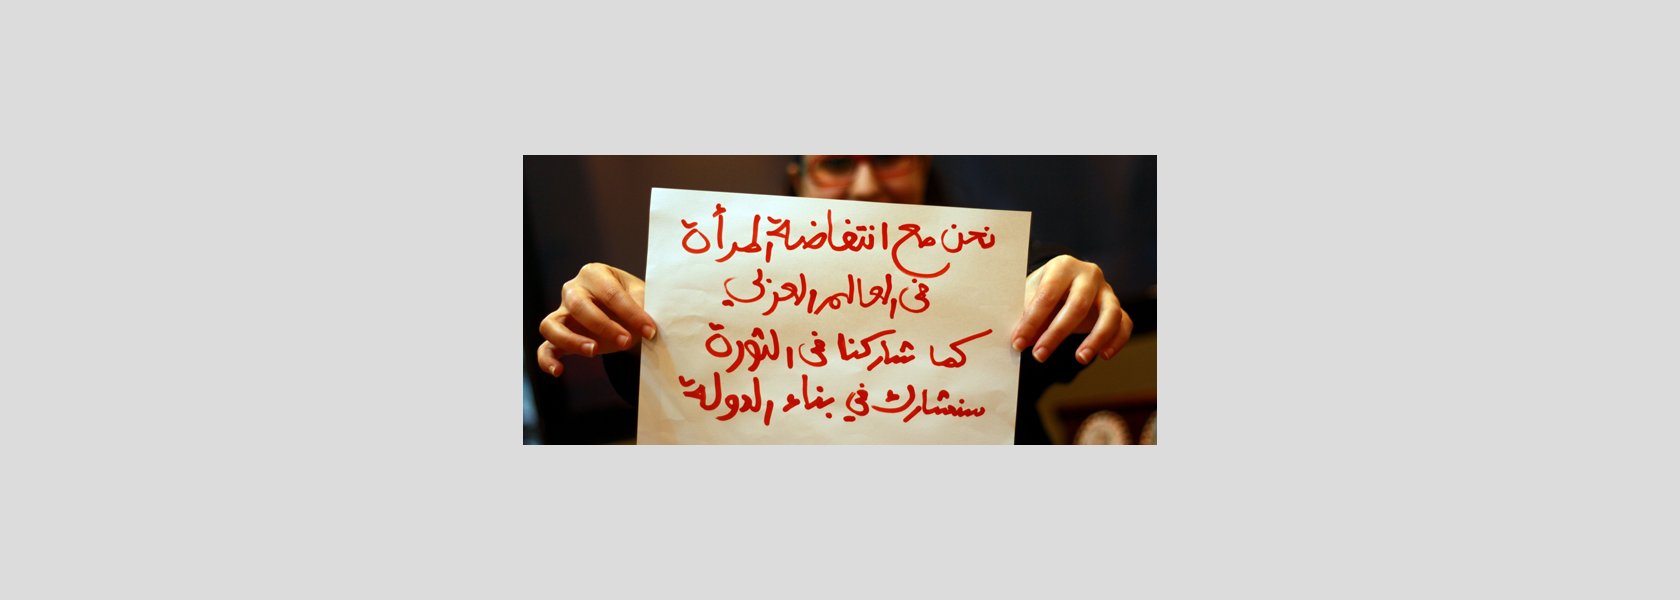 نحن مع انتفاضة المرأة
في العالم العربي
كما شاركنا في الثورة
سنشارك في بناء الدولة